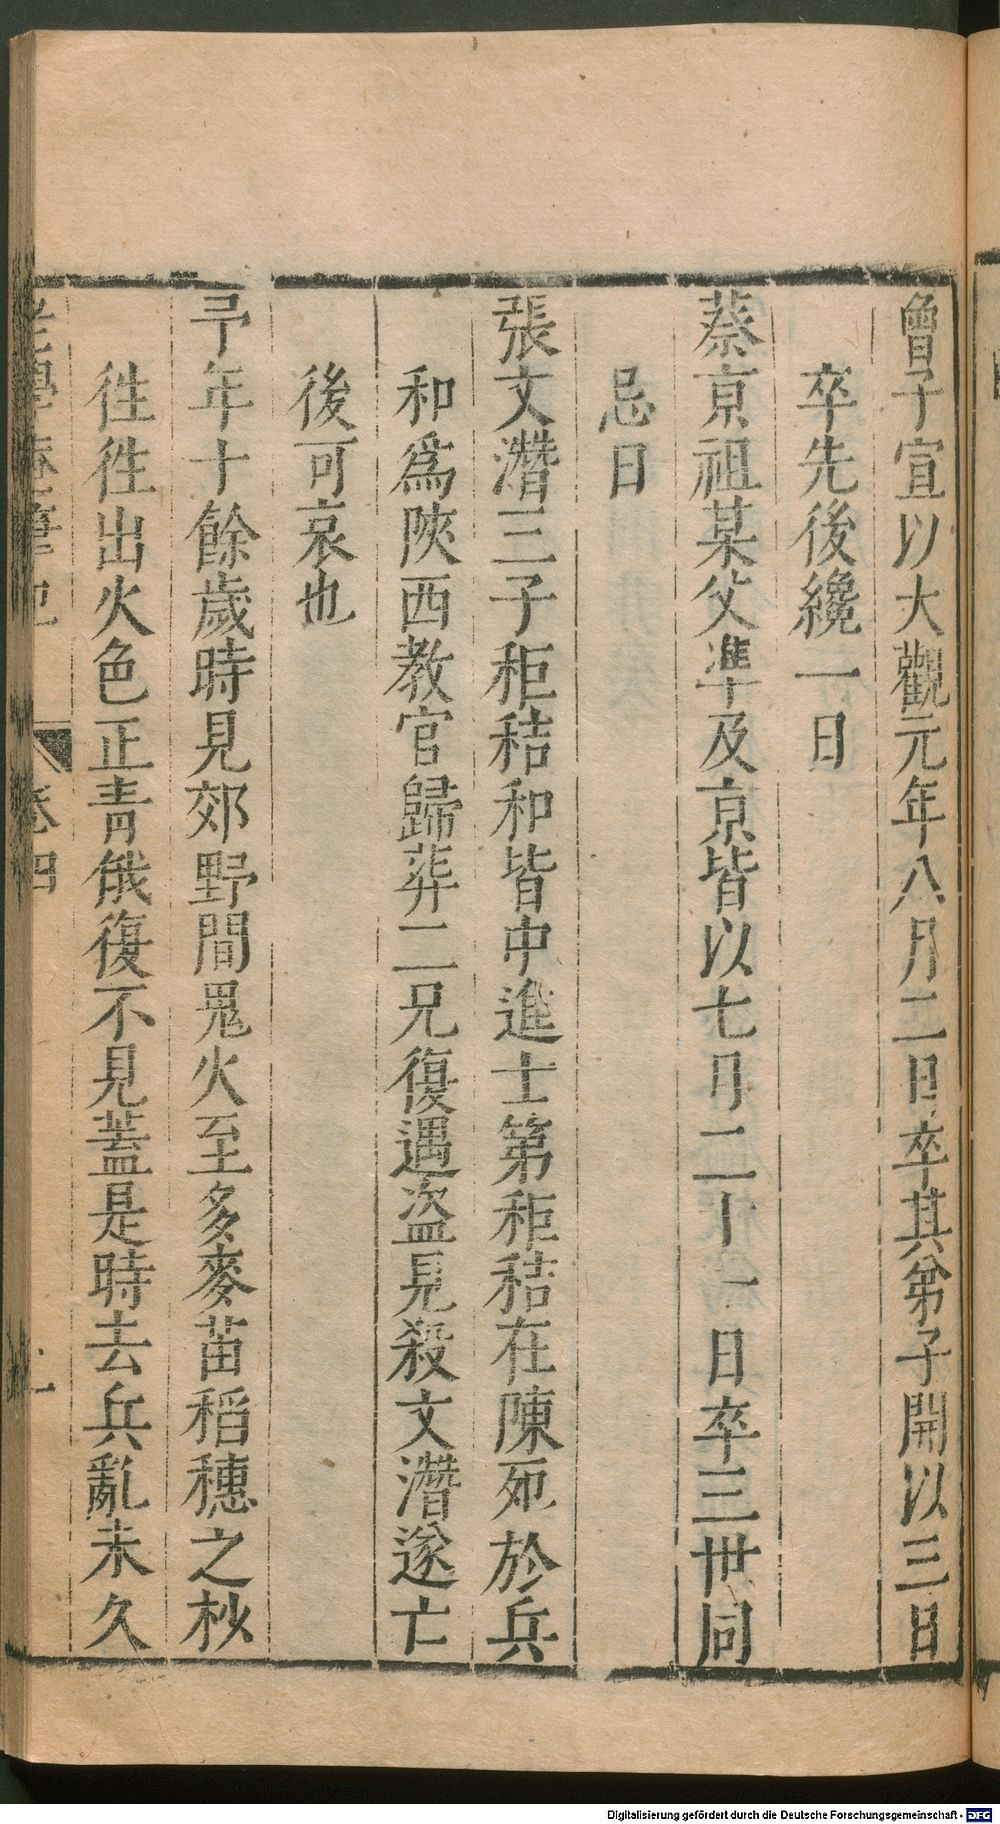 曾子宣以大觀元年八月二日卒其弟子開以三日
卒先後纔一日
蔡京祖某父準及京皆以七月二十一日卒三世同
忌日
張文潛三子秬秸和皆中進士第秬秸在陳死於兵
和爲陝西教官歸葬二兄復遇盜見殺文潛遂亡
後可哀也
予年十餘歲時見郊野間鬼火至多麥苗稻穗之杪
徃徃出火色正青俄復不見蓋是時去兵亂未久
老學庵筆記 卷四
Digitalisierung gefördert durch die Deutsche Forschungsgemeinschaft - DFG